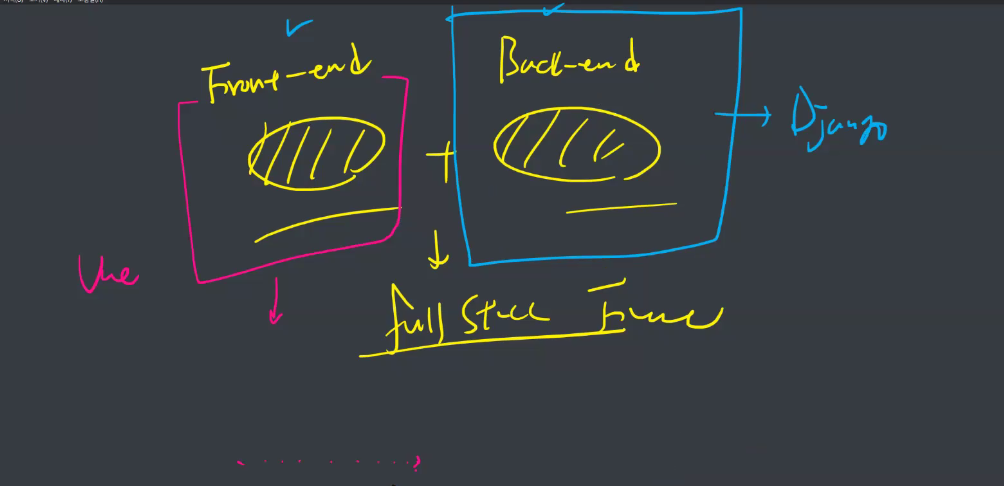 Front-end
Back-end
+
Django
Vue
full Stack